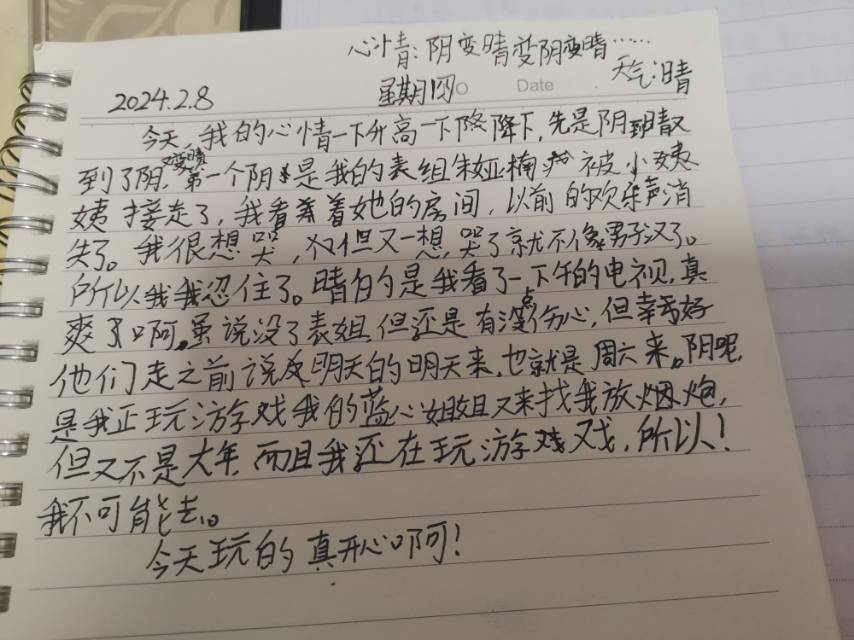 心情:阴变晴变阴变晴……
2024.2.8 星期四 天气:晴
NO Date
今天,我的心情一下升高一下降降下,先是阴到晴又
到了阴,变晴第一个阴是我的表组朱娅楠被小姨
姨接走了,我看着她的房间,以前的欢乐声消
失了。我很想哭,但又一想,哭了就不像男子汉了。
所以我我忍住了。晴的是我看了一下午的电视,真
爽了啊。虽说没了表姐,但还是有点伤心,但幸好
他们走之前说明天的明天来,也就是周六来。阴呢,
是我正玩游戏我的蓝心姐姐又来找我放烟炮,
但又不是大年,而且我还在玩游戏戏,所以!
我不可能去。
今天玩的真开心啊!